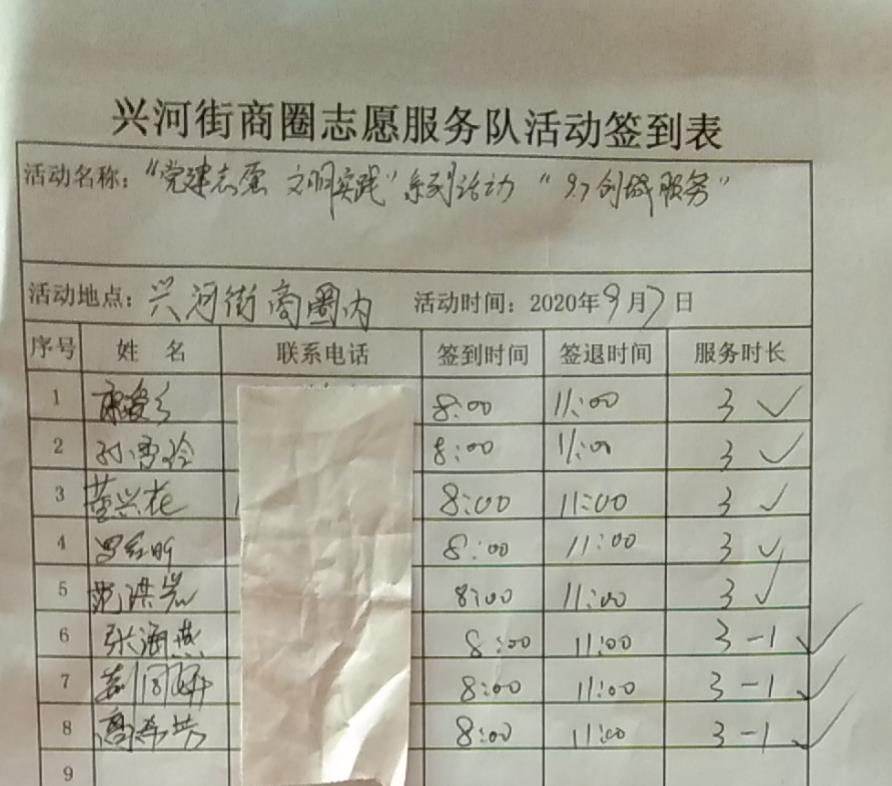 兴河街商圈志愿服务队活动签到表
活动名称："党建志愿 文明实践"系列活动 "9.7创城服务"
活动地点：兴河街商圈内 活动时间：2020年9月7日
序号 姓 名 联系电话 签到时间 签退时间 服务时长
1 8:00 11:00 3 ✓
2 孙雪玲 8:00 11:00 3 ✓
3 董兴花 8:00 11:00 3 ✓
4 8:00 11:00 3 ✓
5 范洪岩 8:00 11:00 3 ✓
6 张海燕 8:00 11:00 3-1 ✓
7 8:00 11:00 3-1 ✓
8 8:00 11:00 3-1 ✓
9